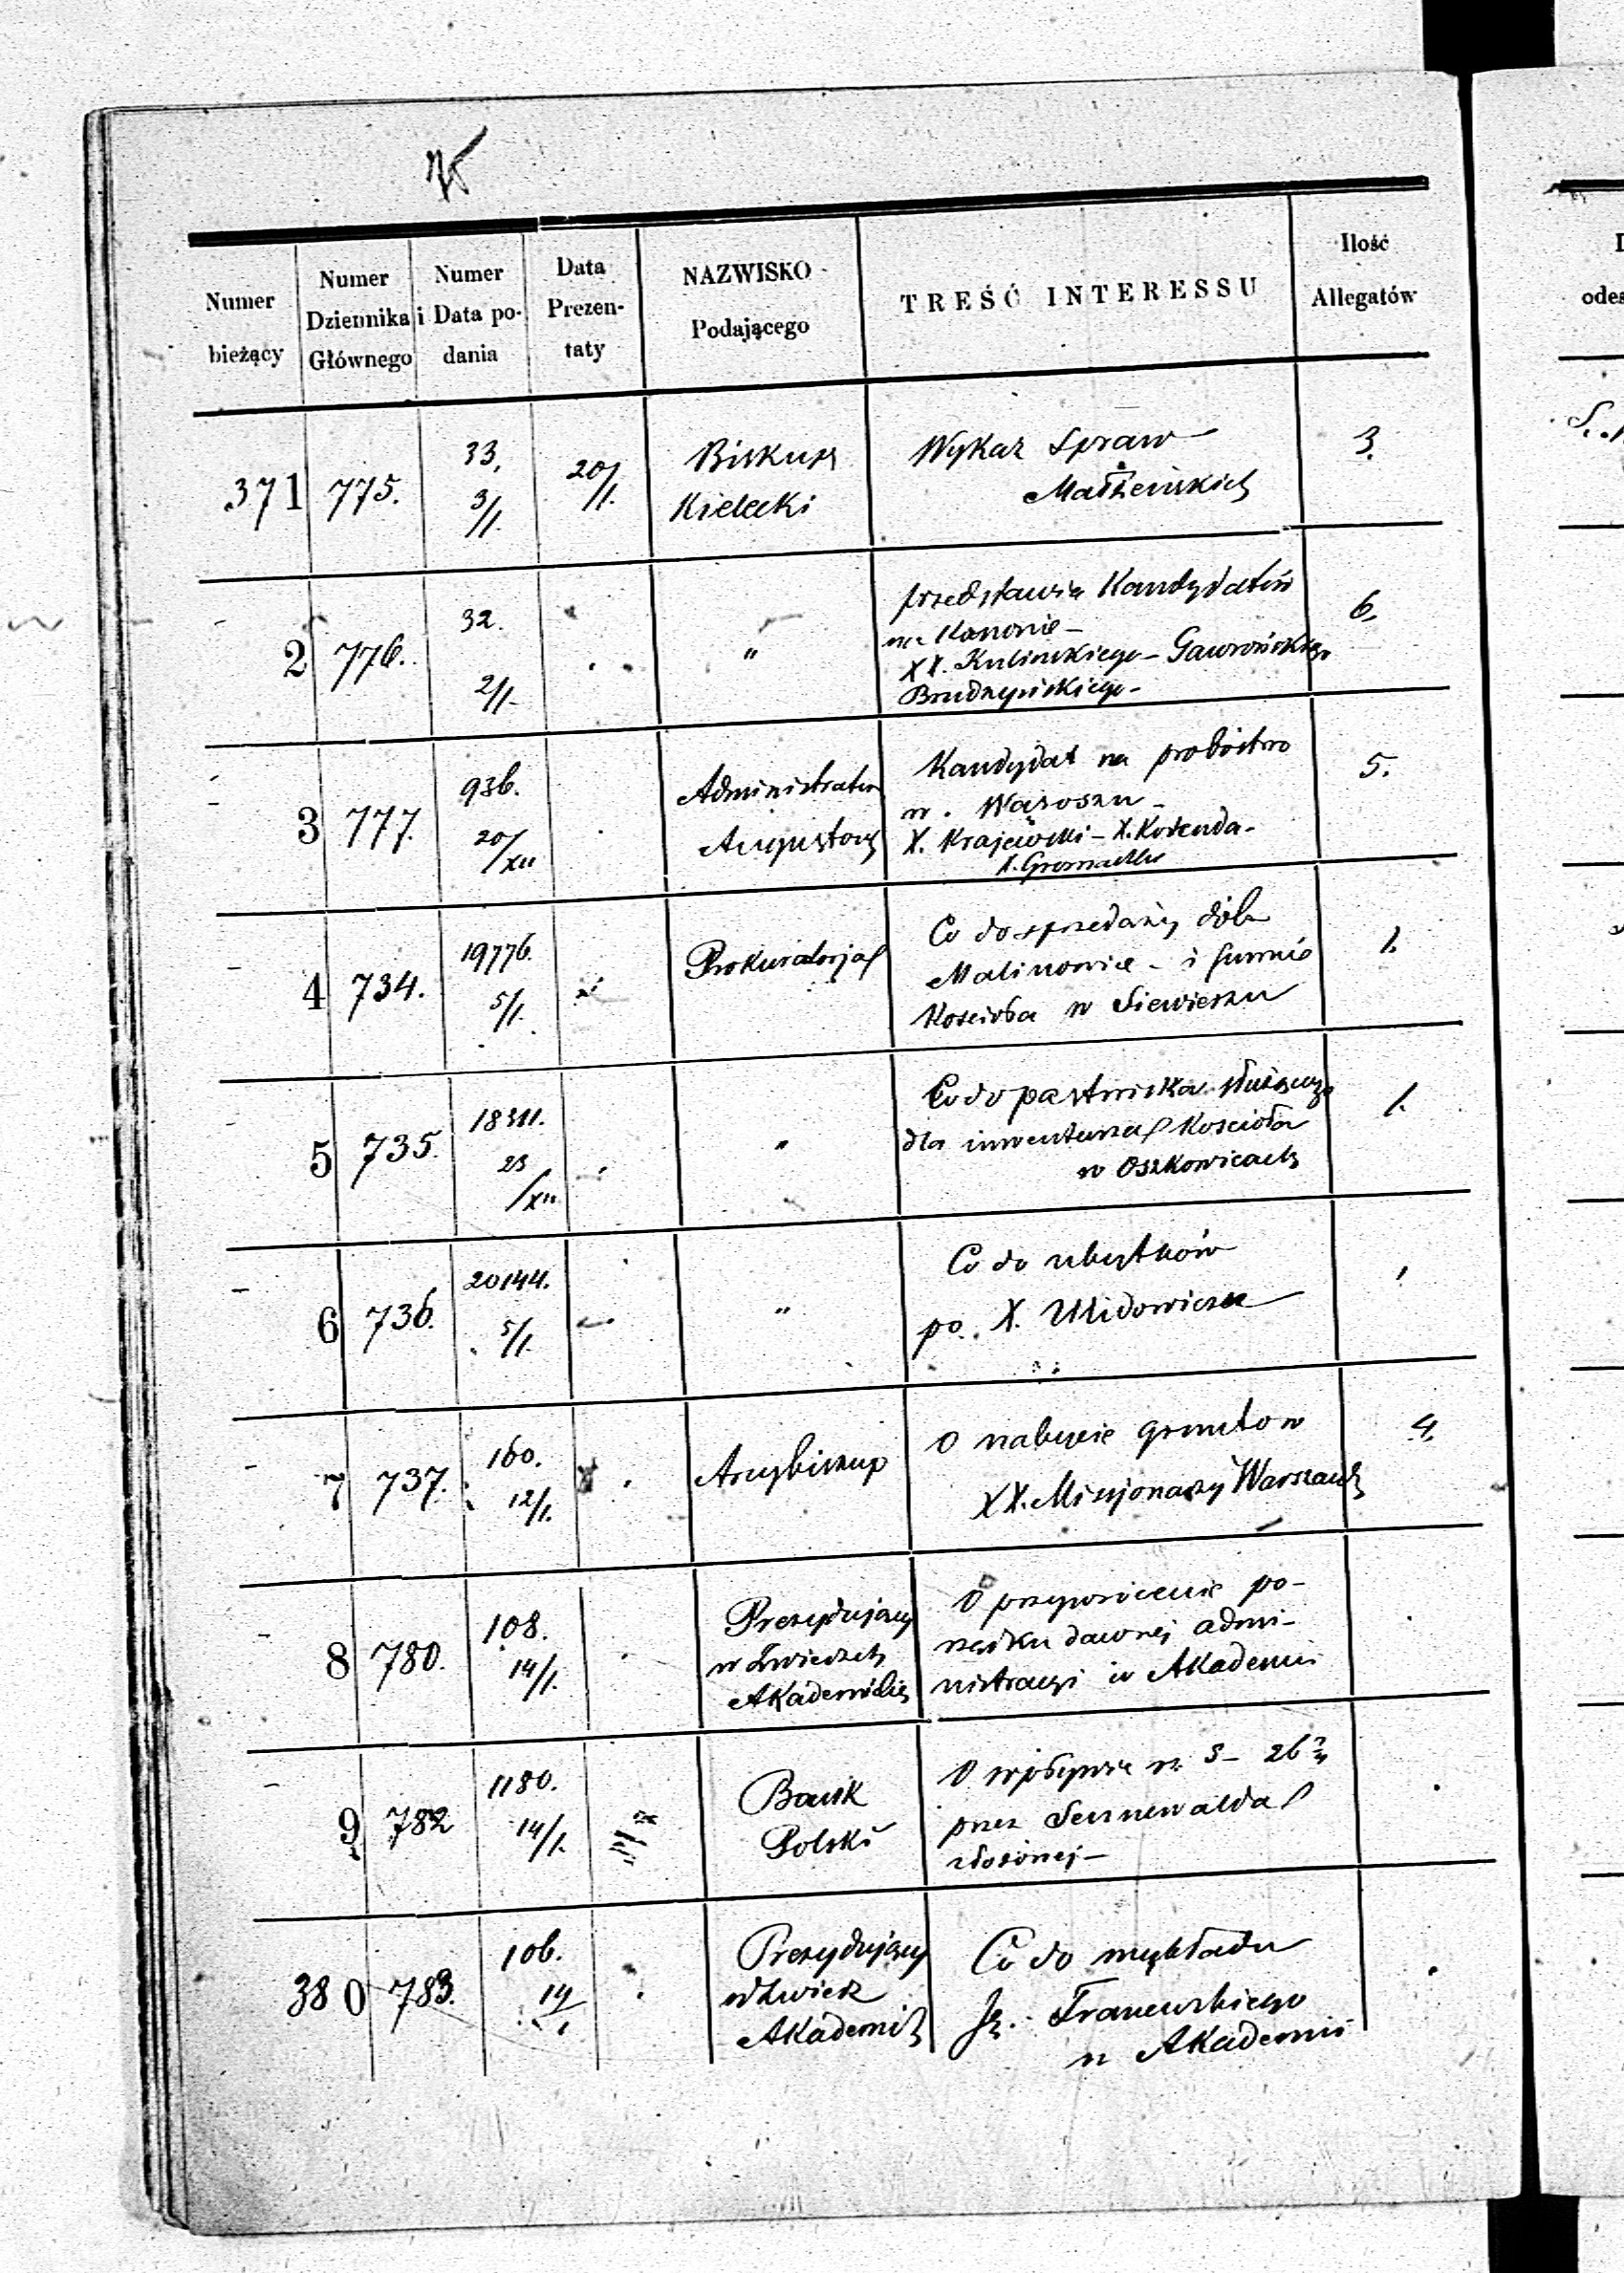 Numer bieżący
Numer Dziennika Głównego
Numer i Data podania
Data Prezentaty
NAZWISKO Podającego
TREŚĆ INTERESSU
Ilość Allegatów
371 775. 33. 3/I. 20/I. Biskup Kielecki
Wykaz Spraw
Małżeńskich
3.
2 776. 32. 2/I. "
przedstawia Kandydatów
na Kanonie
XX. Kulinskiego - Gawrońskiego
Brudzyńskiego -
6.
3 777. 936. 20/XII Administrator Augustow
Kandydat na probóstwo
w. Wąsoszu -
X. Krajewski - X. Kożenda -
X. Gromadzki
5.
4 734. 19776. 5/I. Prokuratorja
Co do sprzedaży dóbr
Malinowice - i summie
Kościoła w Siewierzu
1.
5 735. 18311. 23/XII "
Co do pastwiska służącego
dla inwentarza Kościoła
w Oszkowicach
1.
6 736. 20144. 5/I. "
Co do ubytków
po X.
7 737. 160. 12/I. Arcybiskup
O nabycie gruntow
XX. Misjonarzy Warszaws
4.
8 780. 108. 14/I. Prezydujący w Zwierzch Akademickiej
O przywrócenie po-
rządku dawnej admi-
nistracyi w Akademii
9 782 1180. 14/I. Bank Polski
O wpływie rs. 3 - 26
przez
złożonej -
380 783. 106. 14/I Prezydujący w Zwierz Akademii
Co do wykładu
Franewskiego
w Akademii